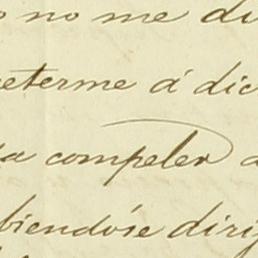 o no me di
eterme á dic
a compeler a
biendose dirij